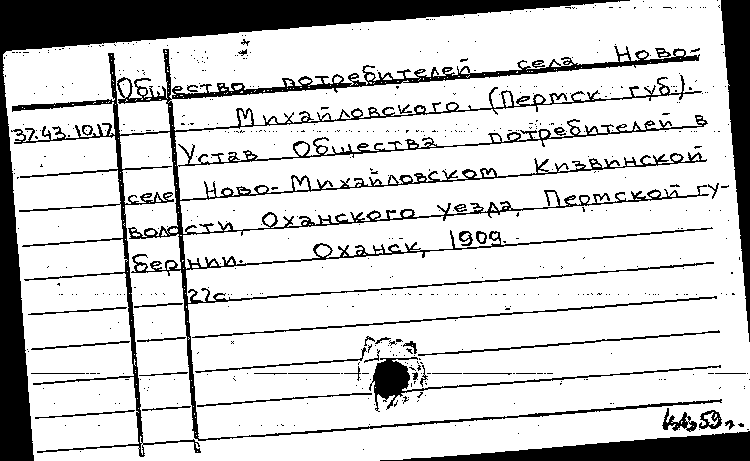 Общество потребителей села Ново-
Михайловского. (Пермск губ.).
37.43.10.17
Устав Общества потребителей в
селе Ново-Михайловском Кизвинской
волости, Оханского уезда, Пермской гу-
бернии. Оханск, 1909.
22с.
59г.